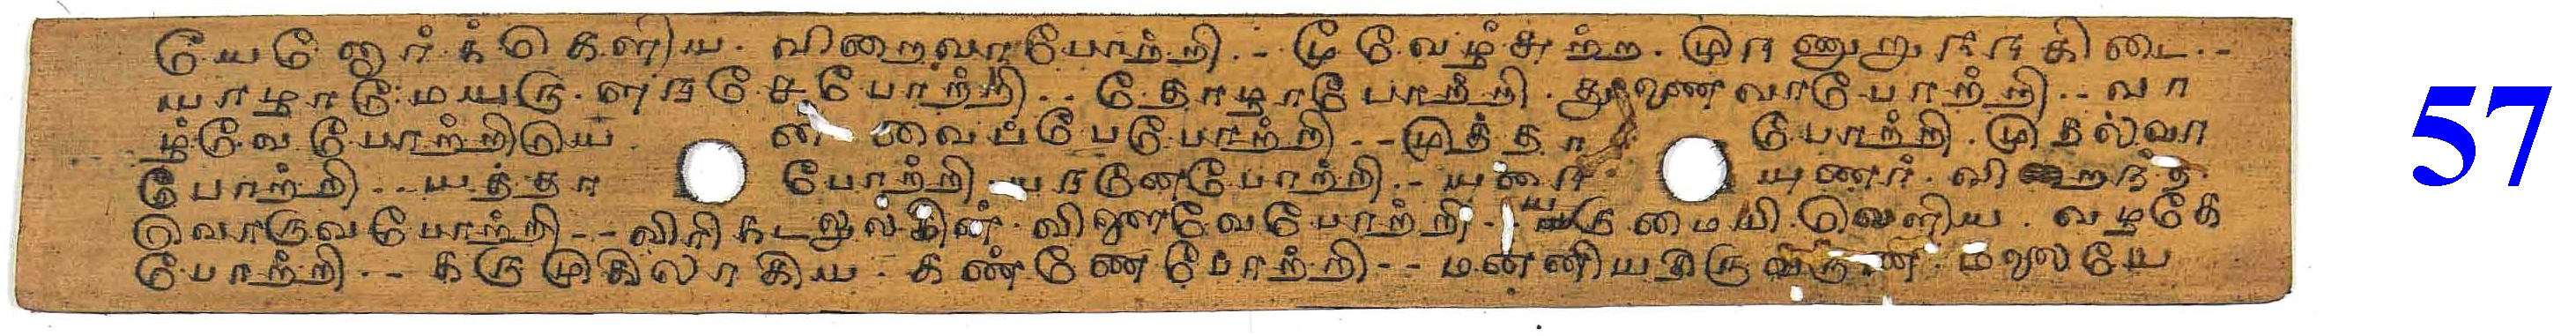 யேனோர்க்கெளிய. விறைவாபோற்றி.- மூவேழ்சுற்ற. முரணுறுநரகிடை.-
யாழாமேயரு.ளரசேபோற்றி.. தோழாபோற்றி. துணைவாபோற்றி.. வா
ழ்வேபோற்றியெ ன் வைப்பேபோற்றி.- முத்தா போற்றி. முதல்வா
போற்றி.. யத்தா போற்றி. யரனேபோற்றி.- யுரை யுணர். விறந்த
வொருவபோற்றி.- விரிகடலுலகின். விளைவேபோற்றி.. யருமையி.லெளிய. வழகே
போற்றி.- கருமுகிலாகிய. கண்ணேபோற்றி.- மன்னியதிருவருண். மலையே
57